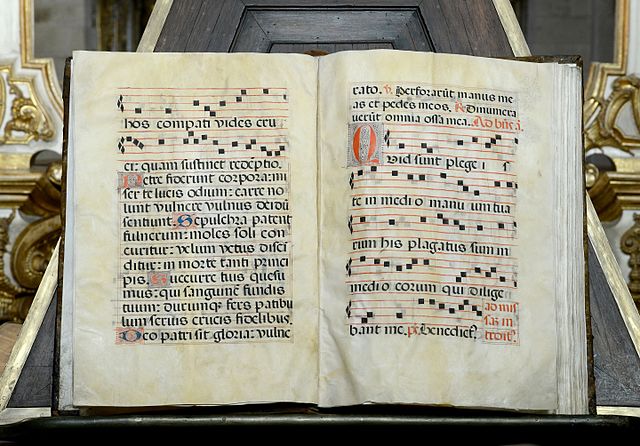 hos compati vides cru
ci: quam sustinet redēptio.
Petre fiderunt corpora: mi
ser te lucis odium:
vulnere vulnus
sentiunt. Sepulchra patent
fulnerum: moles soli con
velum vetus disci
ditur: in morte tanti princi
pis. Succurre tuis quesu
mus: qui sanguinē fundis
tuum: dirumqꝫ fers patibu
lum seruis crucis fidelibus.
Deo patri sit gloria: vulne
rato. v. Perforarūt manus me
as et pedes meos. R. Dinumera
uerūt omnia ossa mea. Ad
Quid sunt plege i s
te in medio manuum tua
rum his plagatus sum in
medio eorum qui dilige
bant me. ps. Benedict9.
ad mis
sas in
troit9